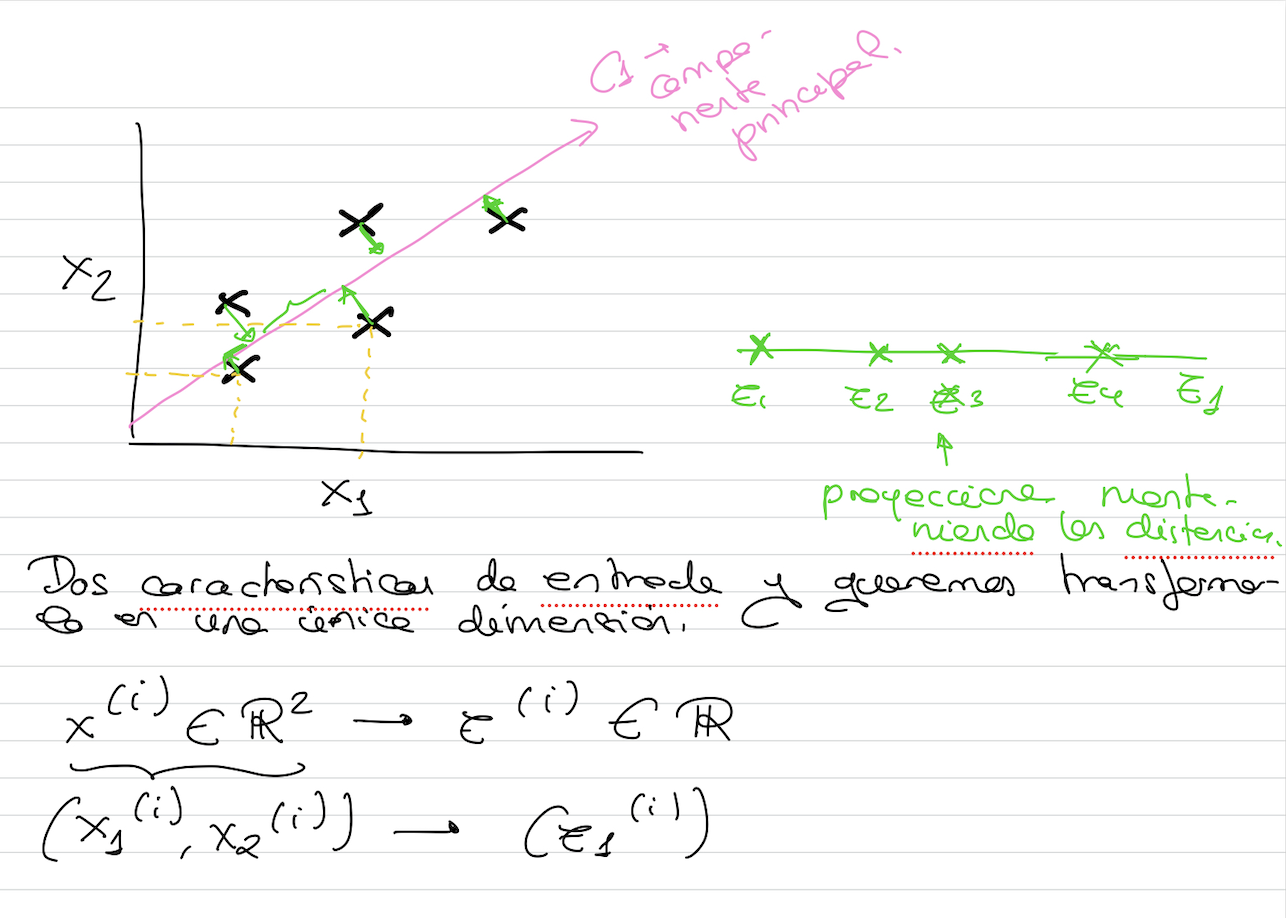 C1 → compo-
nente
principal.
X2
X1
z1 z2 z3 z4 z1
proyecciones mante-
niendo las distancias.
Dos características de entrada y queremos transformar-
lo en una única dimensión.
x^(i) ∈ ℝ² → z^(i) ∈ ℝ
(x1^(i), x2^(i)) → (z1^(i))